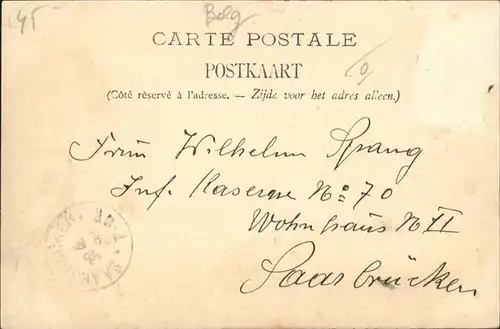 45
Belg
CARTE POSTALE
POSTKAART
(Côté réservé à l'adresse. — Zijde voor het adres alleen.)
Frau Wilhelm Spang
Inf. Kaserne No 70
Wohnhaus No II
Saarbrücken